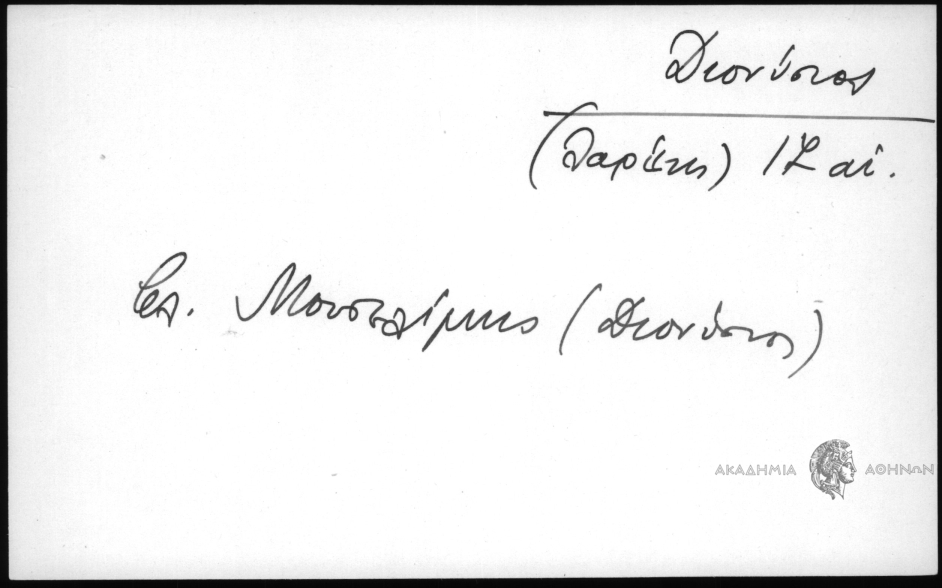 Διονύσιος
(Λαρίσης) 17 αἰ.
βλ. Μουσελίμης (Διονύσιος)
ΑΚΑΔΗΜΙΑ ΑΘΗΝΩΝ